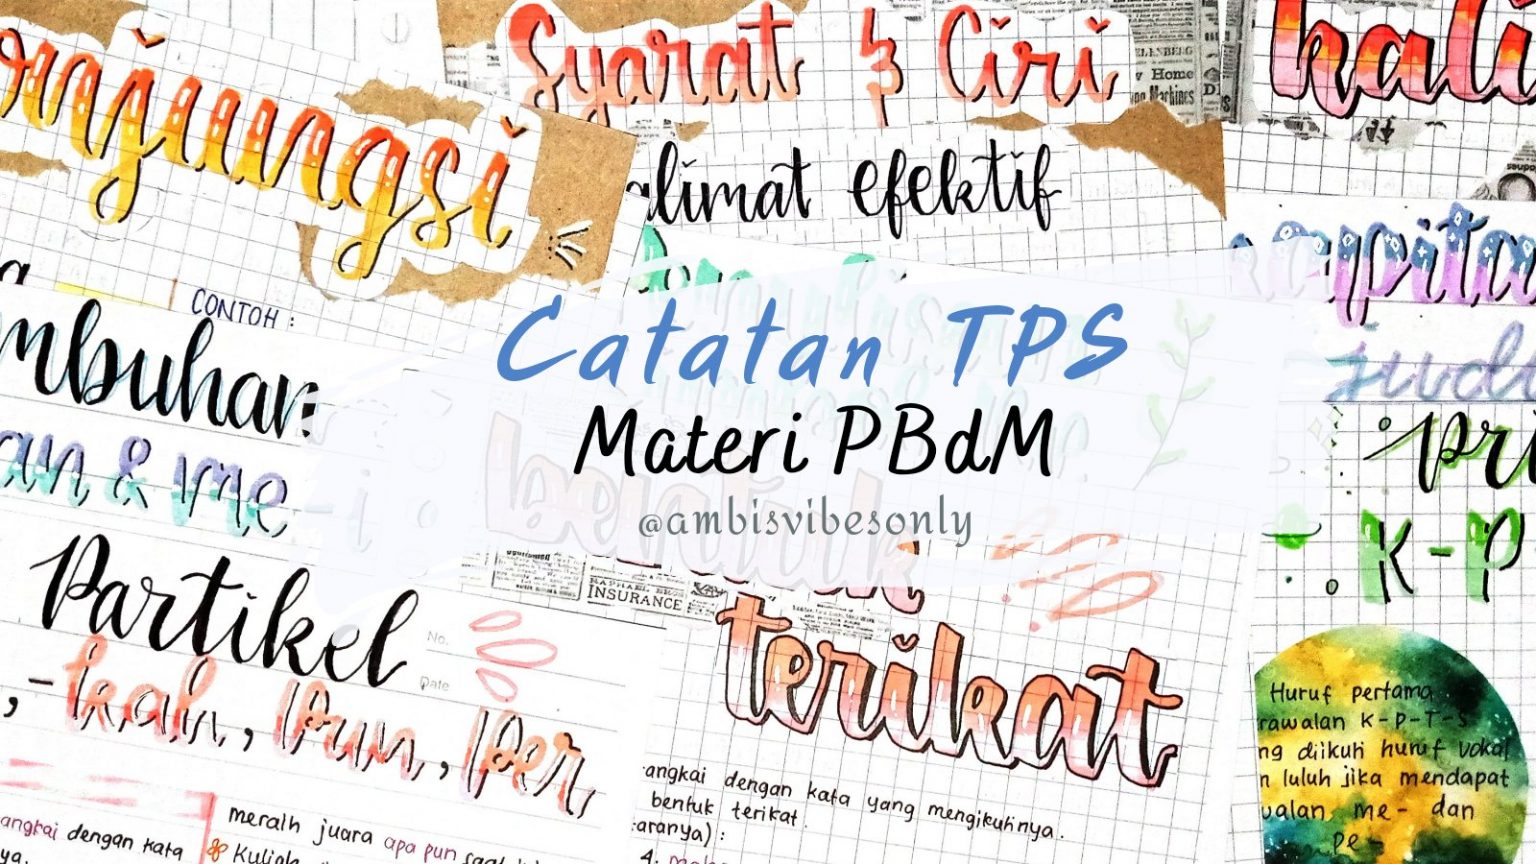 Syarat & Ciri
kali
onjungsi
alimat efektif
apita
CONTOH :
mbuhan
an & me-
Catatan TPS
Materi PBdM
@ambisvibesonly
judu
pri
K-P
bentuk
INSURANCE
terikat
Partikel
No.
Date
, -kah, pun, per
angkai dengan kata yang mengikutinya.
bentuk terikat.
aranya) :
angkai dengan kata
meraih juara apa pun
Kuliah
Huruf pertama
rawalan K-P-T-S
ng diikuti huruf vokal
n luluh jika mendapat
walan me- dan
pe-